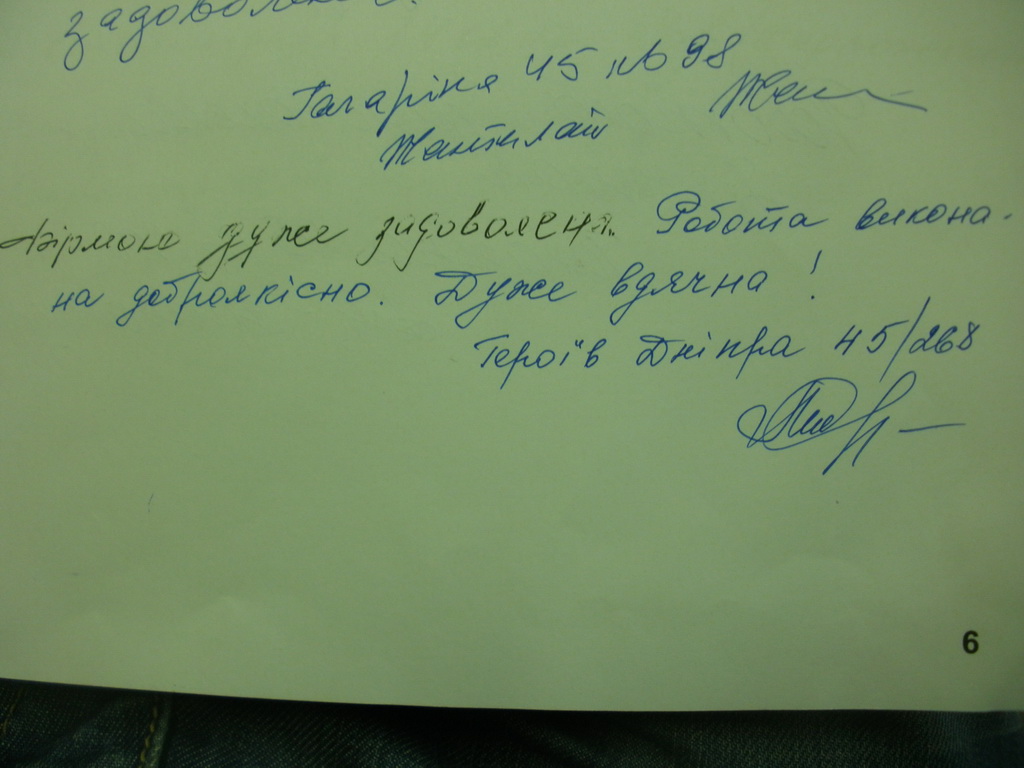 Гагаріна 45 кв 98
Жантилай
Фірмою дуже задоволена. Робота викона-
на доброякісно. Дуже вдячна!
Героїв Дніпра 45/268
6